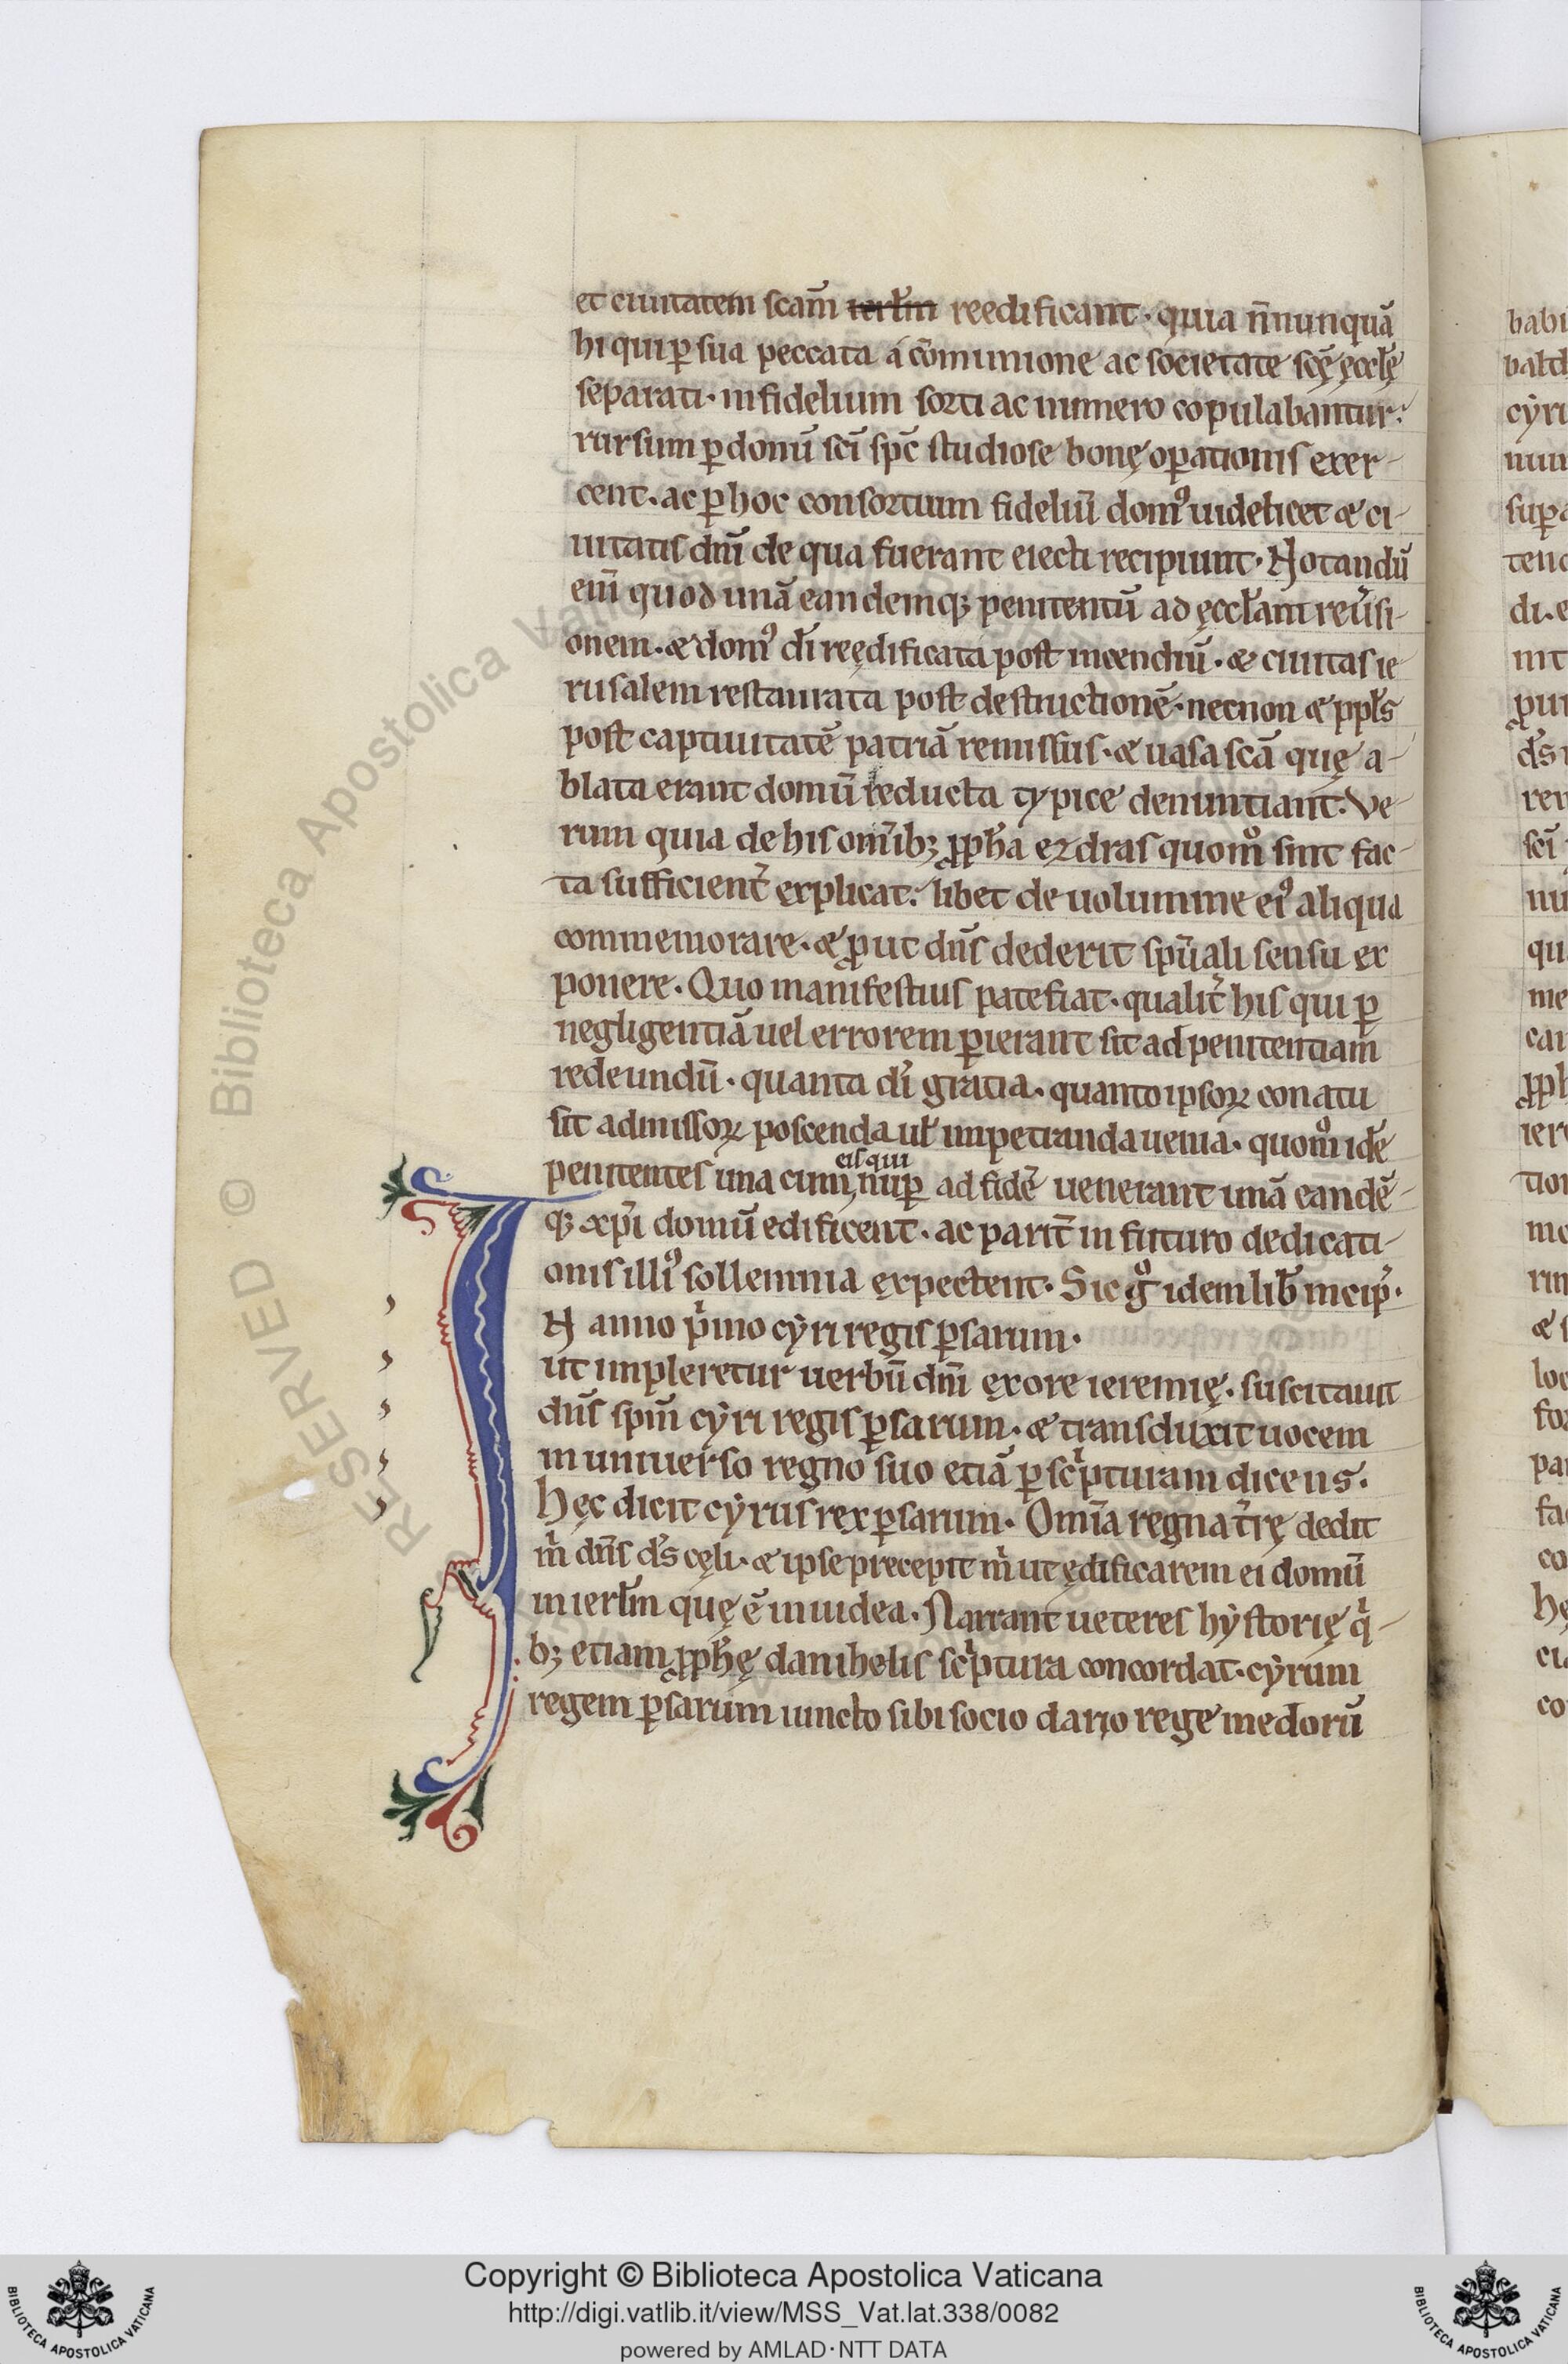 et ciuitatem scãm ierl̃m reedificant· quia ñnunquã
hi qui ꝑ sua peccata a cõmunione ac societate scę̃ ęccl̃ę
separati· infidelium sorti ac numero copulabantur·
rursum ꝑ donũ sc̃i sp̃c studiose bonę oꝑationis exer-
cent· ac ꝑ hoc consortium fideliũ domꝰ uidelicet & ci-
uitatis dñi de qua fuerant eiecti recipiunt· Notandũ
eñi quod unã eandemq; penitentũ ad ęccl̃am reu̾si-
onem· & domꝰ dĩ reędificata post incendiũ· & ciuitas ie
rusalem restaurata post destructionẽ· necnon & ppl̃s
post captiuitatẽ patriã remissus· & uasa scã quę a-
blata erant domũ reducta typice denuntiant· Ve-
rum quia de his om̃ib; ꝓph̃a ezdras quom̊ sint fac-
ta sufficient̾ explicat· libet de uolumine eiꝰ aliqua
commemorare· & ꝓut dñs dederit spũali sensu ex
ponere· Quo manifestius patefiat· qualit̾ his qui ꝑ
negligentiã uel errorem ꝑierant sit ad penitentiam
redeundũ· quanta dĩ gratia· quanto ipsoꝝ conatu
sit admissoꝝ poscenda ul̃ impetranda uenia· quom̊ idẽ
eis qui
penitentes una cum, nuꝑ ad fidẽ uenerant unã eandẽ-
q; xp̃i domũ edificent· ac parit̾ in futuro dedicati-
onis illiꝰ sollemnia expectent· Sic g̊ idem lib̾ incip̾·
IN anno p̾imo cyri regis ꝑsarum·
ut impleretur uerbũ dñi ex ore ieremię· suscitauit
dñs sp̃m cyri regis ꝑsarum· & transduxit uocem
in uniuerso regno suo etiã ꝑ sc̾pturam dicens·
Hęc dicit cyrus rex ꝑsarum· Om̃ia regna t̾rę dedit
m̾ dñs d̃s cęli· & ipse precepit m̾ ut ędificarem ei domũ
in ierl̃m quę ẽ in iudea· Narrant ueteres hystorię q̾-
b; etiam ꝓph̃ę danihelis sc̾ptura concordat· cyrum
regem ꝑsarum iuncto sibi socio dario rege medorũ
babi
cyri
supa
tend
di· e
nit
d̃s
sc̃i
qu
me
car
ꝓph
tion
me
rin
loc
par
co
Biblioteca Apostolica Vaticana
©
RESERVED
Copyright © Biblioteca Apostolica Vaticana
http://digi.vatlib.it/view/MSS_Vat.lat.338/0082
powered by AMLAD·NTT DATA
BIBLIOTECA APOSTOLICA VATICANA
BIBLIOTECA APOSTOLICA VATICANA